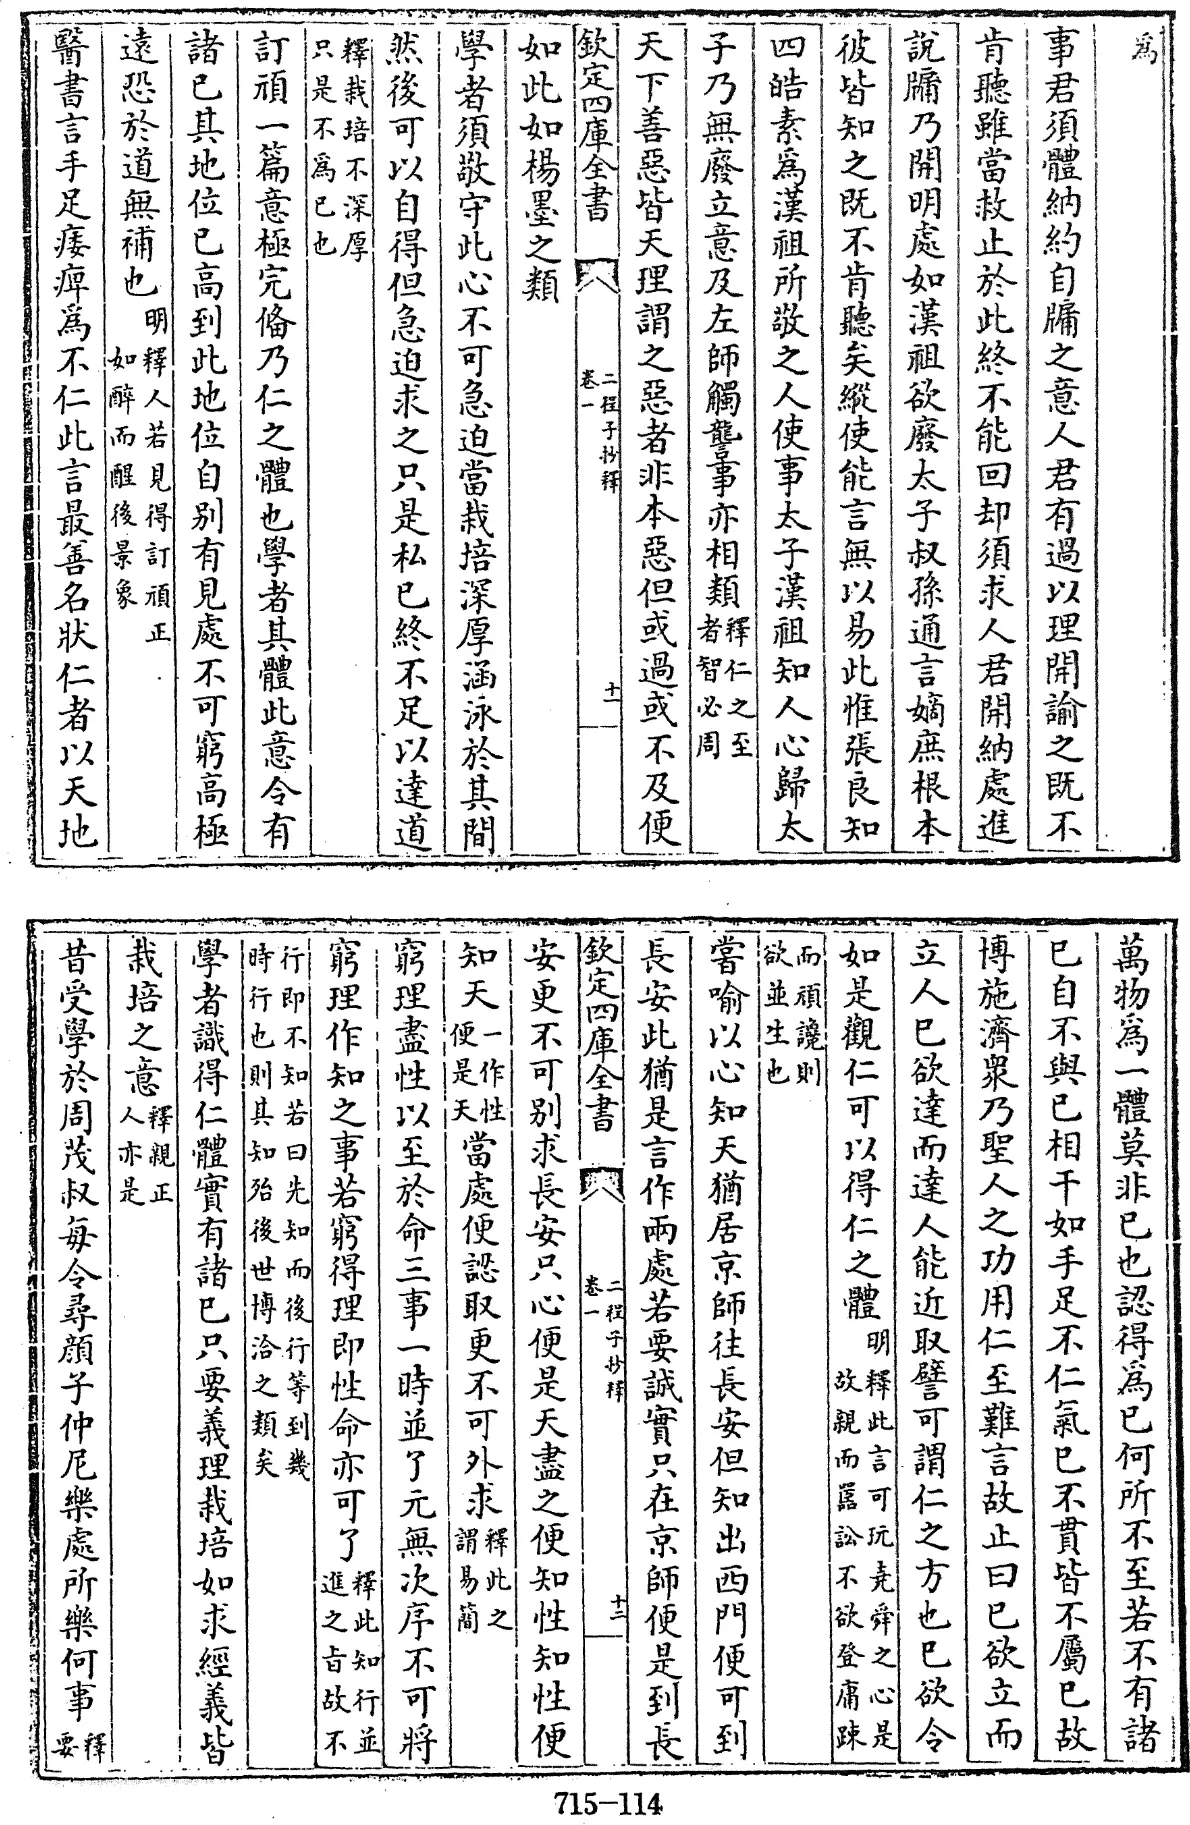 爲
事君須體納約自牖之意人君有過以理開諭之既不
肯聽雖當救止於此終不能回却須求人君開納處進
說牖乃開明處如漢祖欲廢太子叔孫通言嫡庶根本
彼皆知之既不肯聽矣縱使能言無以易此惟張良知
四皓素爲漢祖所敬之人使事太子漢祖知人心歸太
子乃無廢立意及左師觸讋事亦相類釋仁之至
者智必周
天下善惡皆天理謂之惡者非本惡但或過或不及便
欽定四庫全書
二程子抄釋
卷一
十一
如此如楊墨之類
學者須敬守此心不可急迫當栽培深厚涵泳於其間
然後可以自得但急迫求之只是私已終不足以達道
釋栽培不深厚
只是不爲已也
訂頑一篇意極完備乃仁之體也學者其體此意令有
諸已其地位已高到此地位自別有見處不可窮高極
遠恐於道無補也明釋人若見得訂頑正
如醉而醒後景象
醫書言手足痿痺爲不仁此言最善名狀仁者以天地
萬物爲一體莫非已也認得爲已何所不至若不有諸
已自不與已相干如手足不仁氣已不貫皆不屬已故
博施濟衆乃聖人之功用仁至難言故止曰已欲立而
立人已欲達而達人能近取譬可謂仁之方也已欲令
如是觀仁可以得仁之體明釋此言可玩堯舜之心是
故親而嚚訟不欲登庸踈
而頑讒則
欲並生也
嘗喻以心知天猶居京師往長安但知出西門便可到
長安此猶是言作兩處若要誠實只在京師便是到長
欽定四庫全書
二程子抄釋
卷一
十二
安更不可別求長安只心便是天盡之便知性知性便
知天一作性
便是天當處便認取更不可外求釋此之
謂易簡
窮理盡性以至於命三事一時並了元無次序不可將
窮理作知之事若窮得理即性命亦可了釋此知行並
進之旨故不
行即不知若曰先知而後行等到幾
時行也則其知殆後世博洽之類矣
學者識得仁體實有諸已只要義理栽培如求經義皆
栽培之意釋親正
人亦是
昔受學於周茂叔每令尋顔子仲尼樂處所樂何事釋
要
715-114